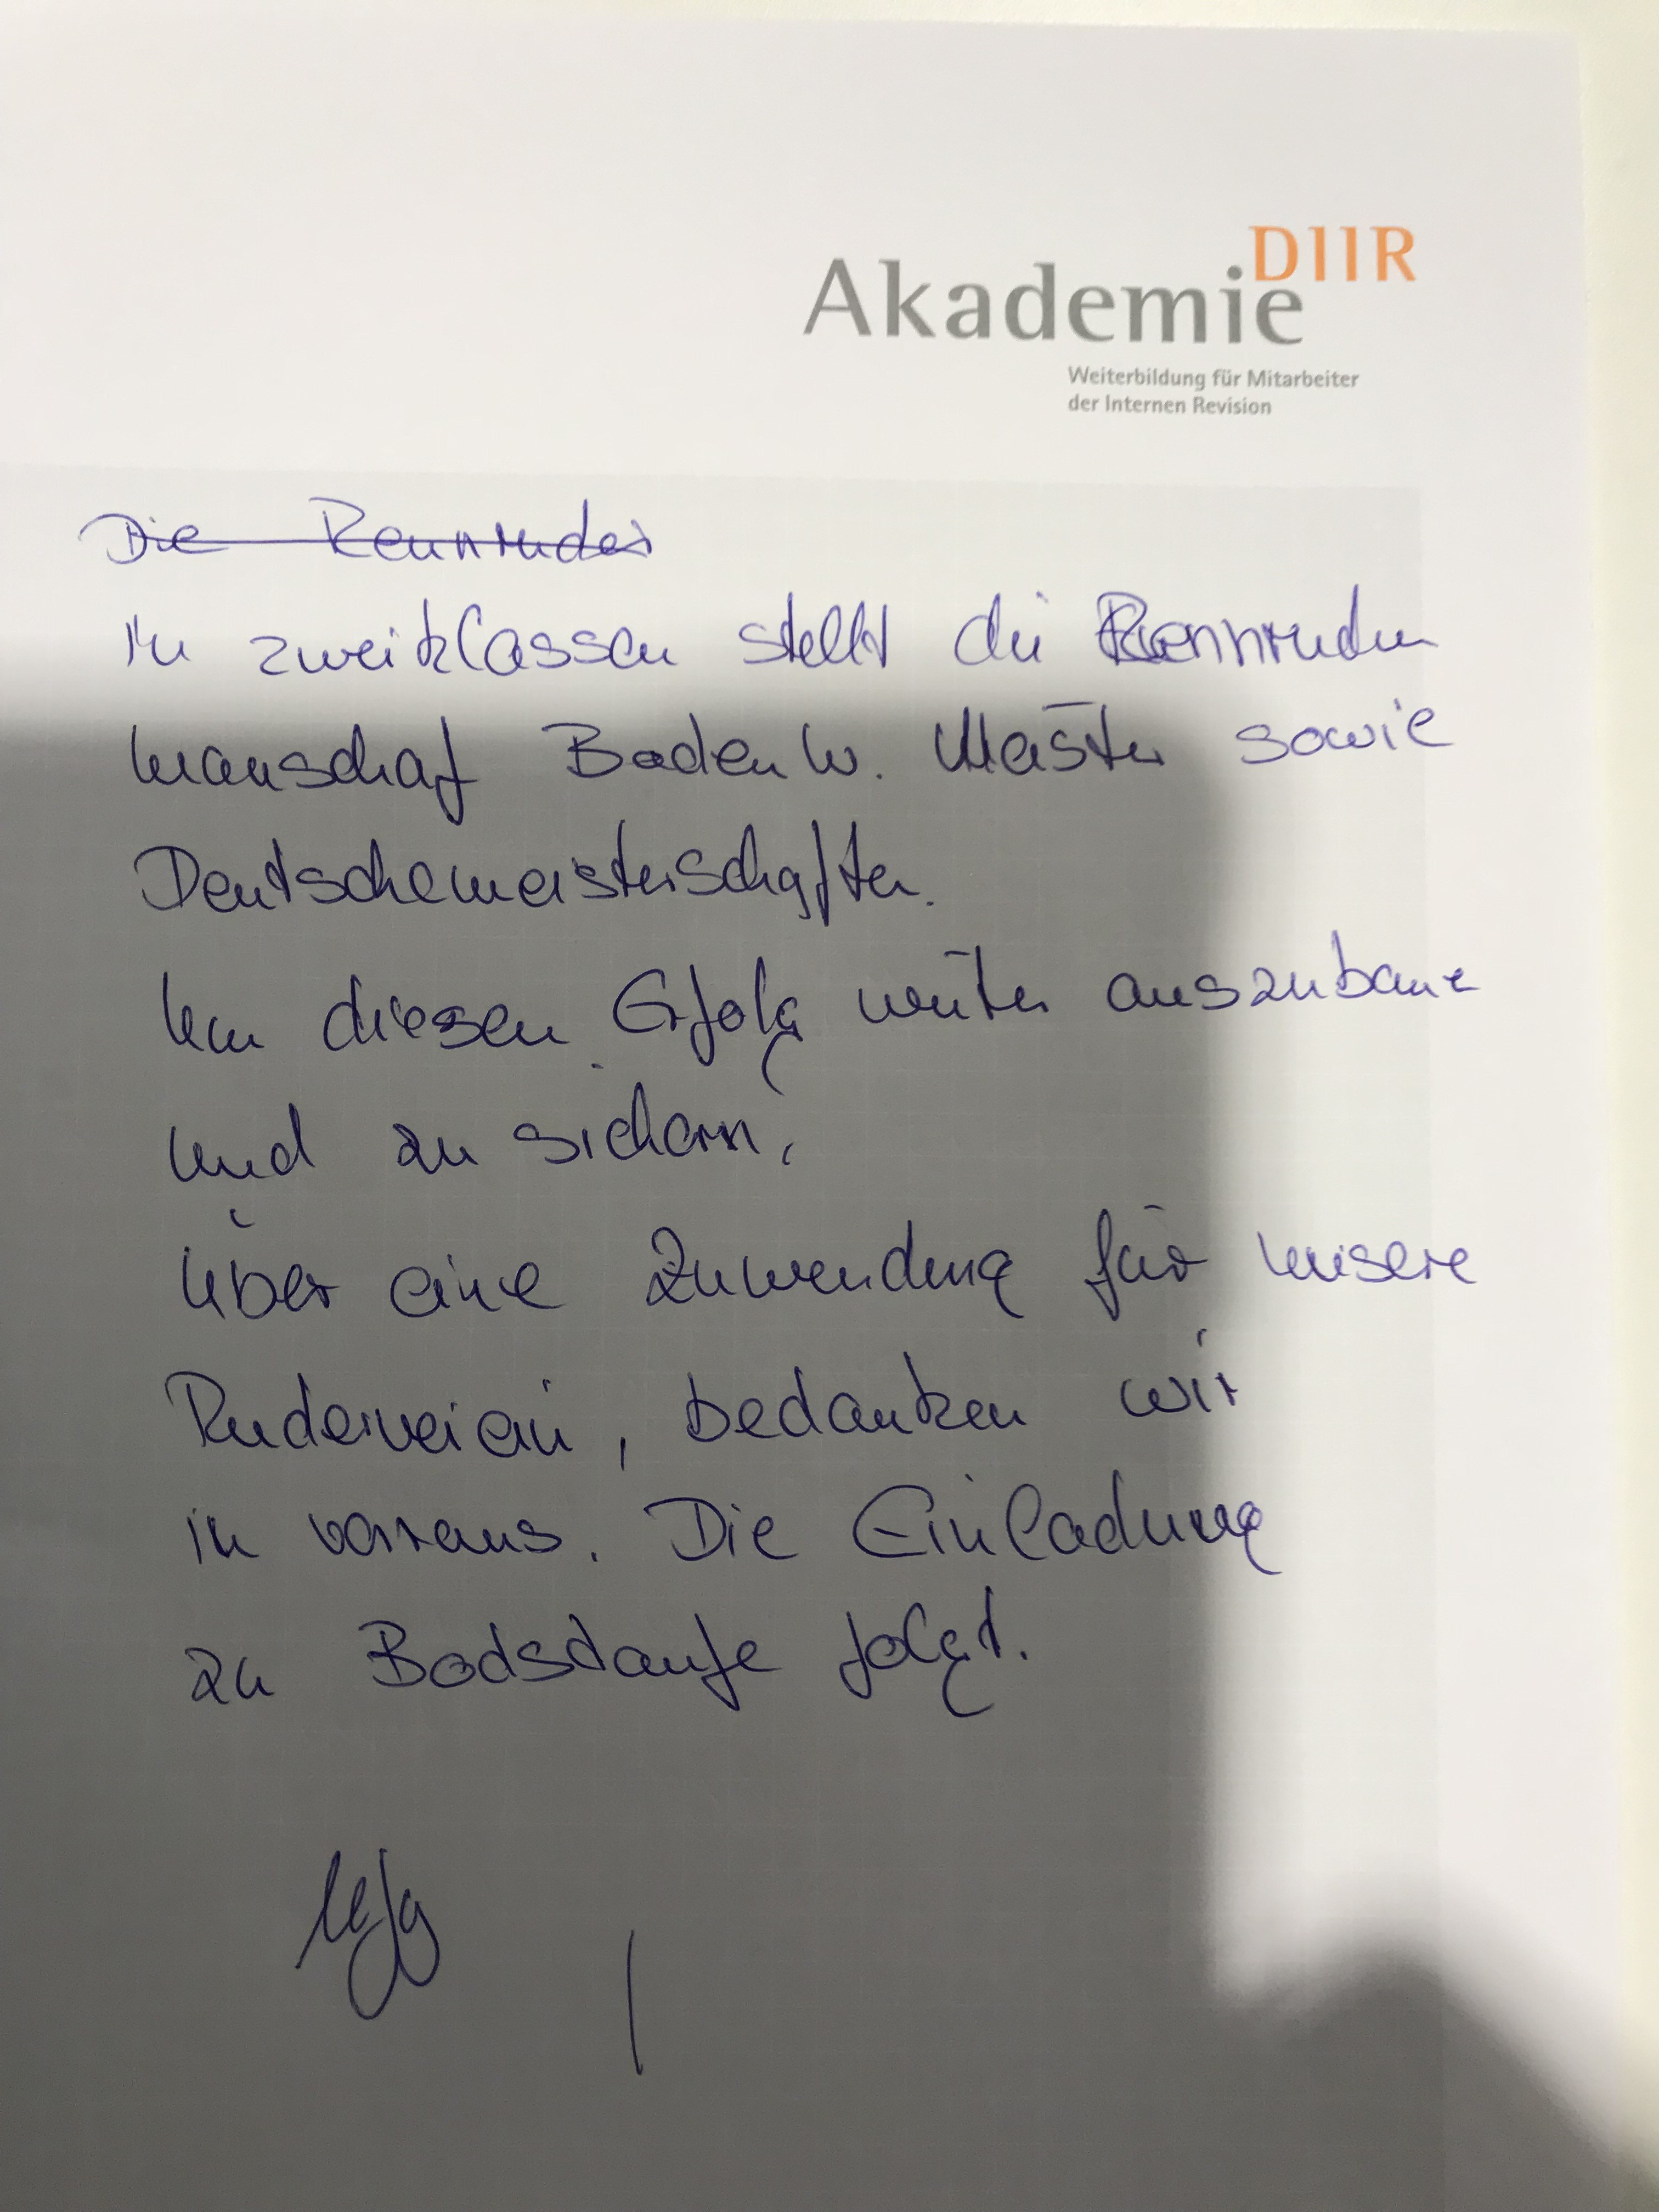 Akademie DIIR
Weiterbildung für Mitarbeiter
der Internen Revision
Die Rennruder
In zweiklassen stellt die Rennruder
manschaf Baden W. Meister sowie
Deutschemeisterschaften.
Um diesen Erfolg weiter auszubaue
und zu sichern,
über eine Zuwendung für unsere
Ruderverein, bedanken wir
in voraus. Die Einladung
zu Bodsdaufe folgt.
Mfg